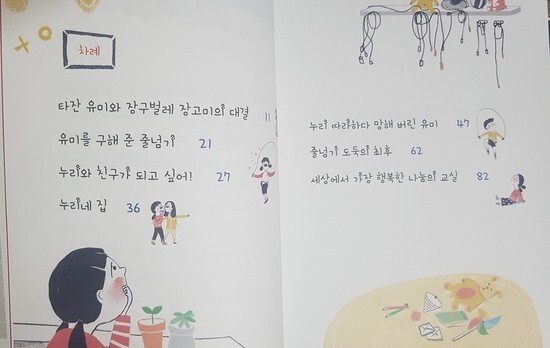 차례
타잔 유미와 장구벌레 장고미의 대결 11
유미를 구해 준 줄넘기 21
누리와 친구가 되고 싶어! 27
누리네 집 36
누리 따라하다 망해 버린 유미 47
줄넘기 도둑의 최후 62
세상에서 가장 행복한 나눔의 교실 82